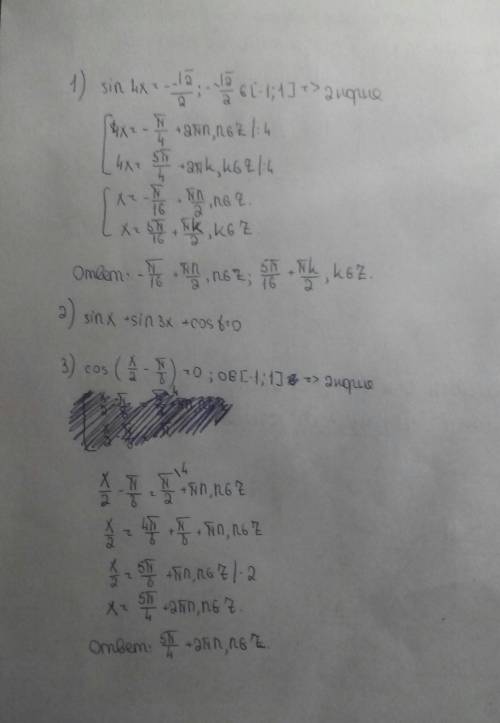 1) sin 4x = -√2/2 ; -√2/2 ∈ [-1;1] =>
[ 4x = -π/4 + 2πn, n∈Z /:4
4x = 5π/4 + 2πk, k∈Z /:4
[ x = -π/16 + πn/2, n∈Z.
x = 5π/16 + πk/2, k∈Z
Ответ: -π/16 + πn/2, n∈Z; 5π/16 + πk/2, k∈Z.
2) sin x + sin 3x + cos
3) cos (x/2 - π/8) = 0 ; 0∈[-1;1] =>
x/2 - π/8 = π/2 \4 + πn, n∈Z
x/2 = 4π/8 + π/8 + πn, n∈Z
x/2 = 5π/8 + πn, n∈Z /·2
x = 5π/4 + 2πn, n∈Z.
Ответ: 5π/4 + 2πn, n∈Z.